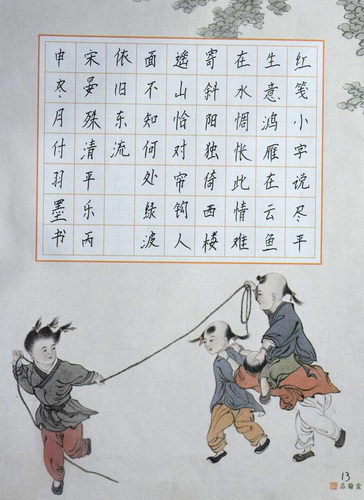 红笺小字说尽平
生意鸿雁在云鱼
在水惆怅此情难
寄斜阳独倚西楼
遥山恰对帘钩人
面不知何处绿波
依旧东流
宋晏殊清平乐丙
申冬月付羽墨书
13